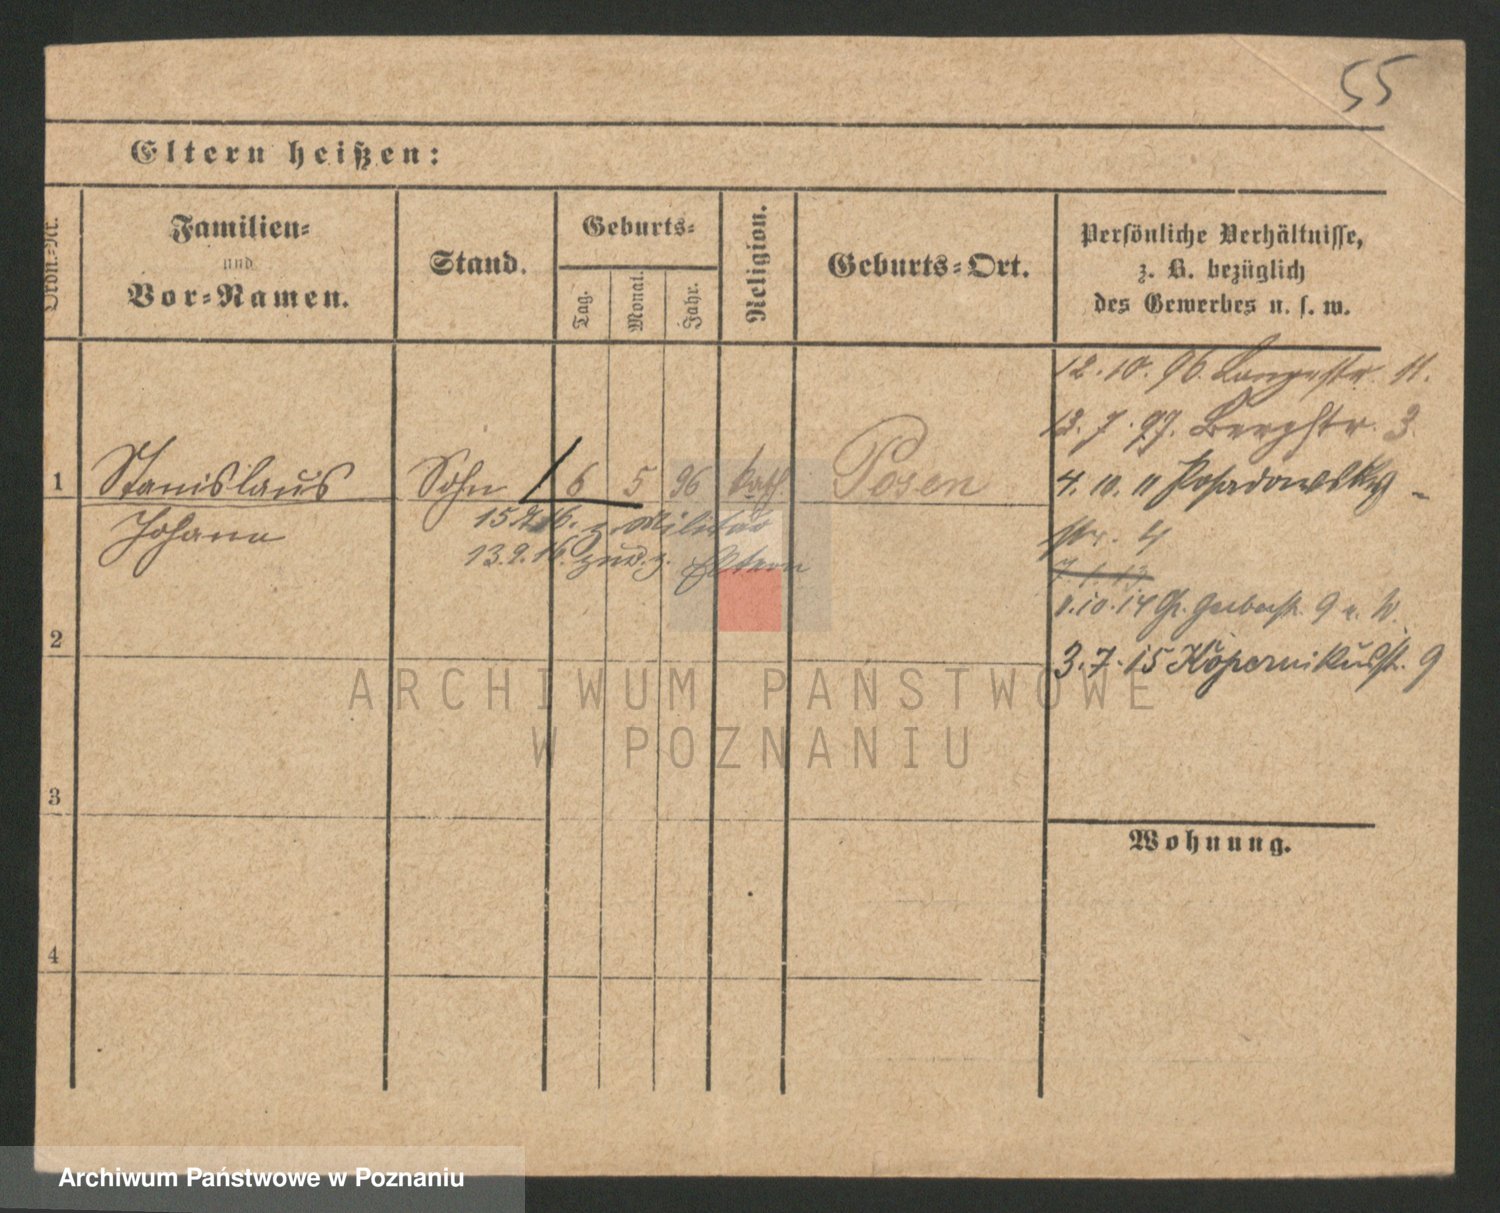 55
Eltern heißen:
Ordn.-Nr.
Familien-
und
Vor-Namen.
Stand.
Geburts-
Tag.
Monat.
Jahr.
Religion.
Geburts-Ort.
Persönliche Verhältnisse,
z. B. bezüglich
des Gewerbes u. s. w.
12.10.96. Langestr. 11.
13.7.97. Bergstr. 3
1 Stanislaus Sohn 6 5 96 kath Posen
4.10.11 Posadowsky-
str. 4
Johann
15. 16. z. Militär
13.9.16. zur. z. Eltern
7.1.13
1.10.14 Gr. Gerberst. 9 u. W.
2
3.7.15 Kopernikusst. 9
3
Wohnung.
4
ARCHIWUM PAŃSTWOWE
W POZNANIU
Archiwum Państwowe w Poznaniu